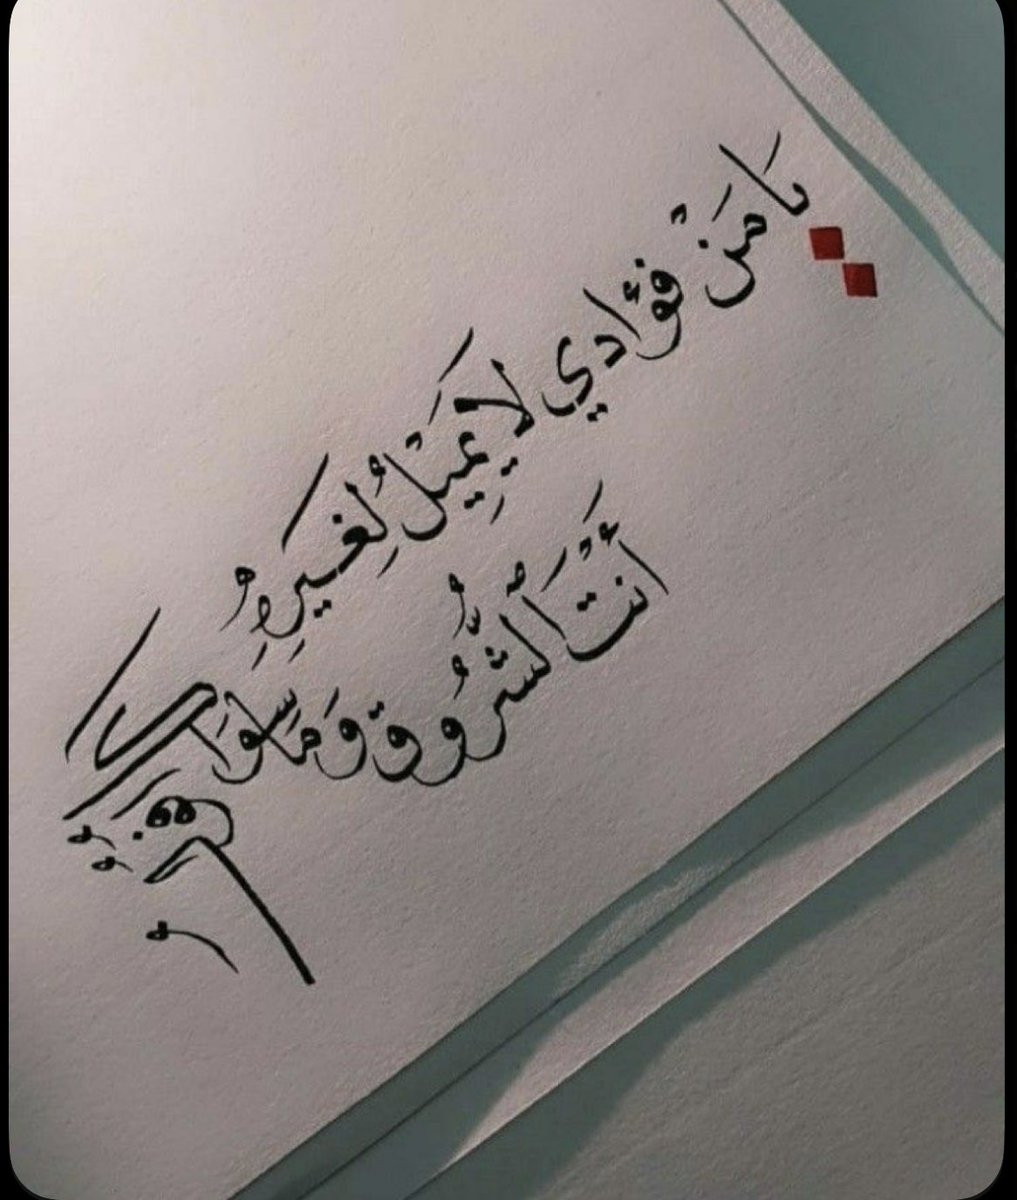 يَا مَنْ فؤادي لَا يَمِيْلُ لِغَيرِهِ
أَنْتَ ٱلشُّرُوق وَمَا سِوَاكَ